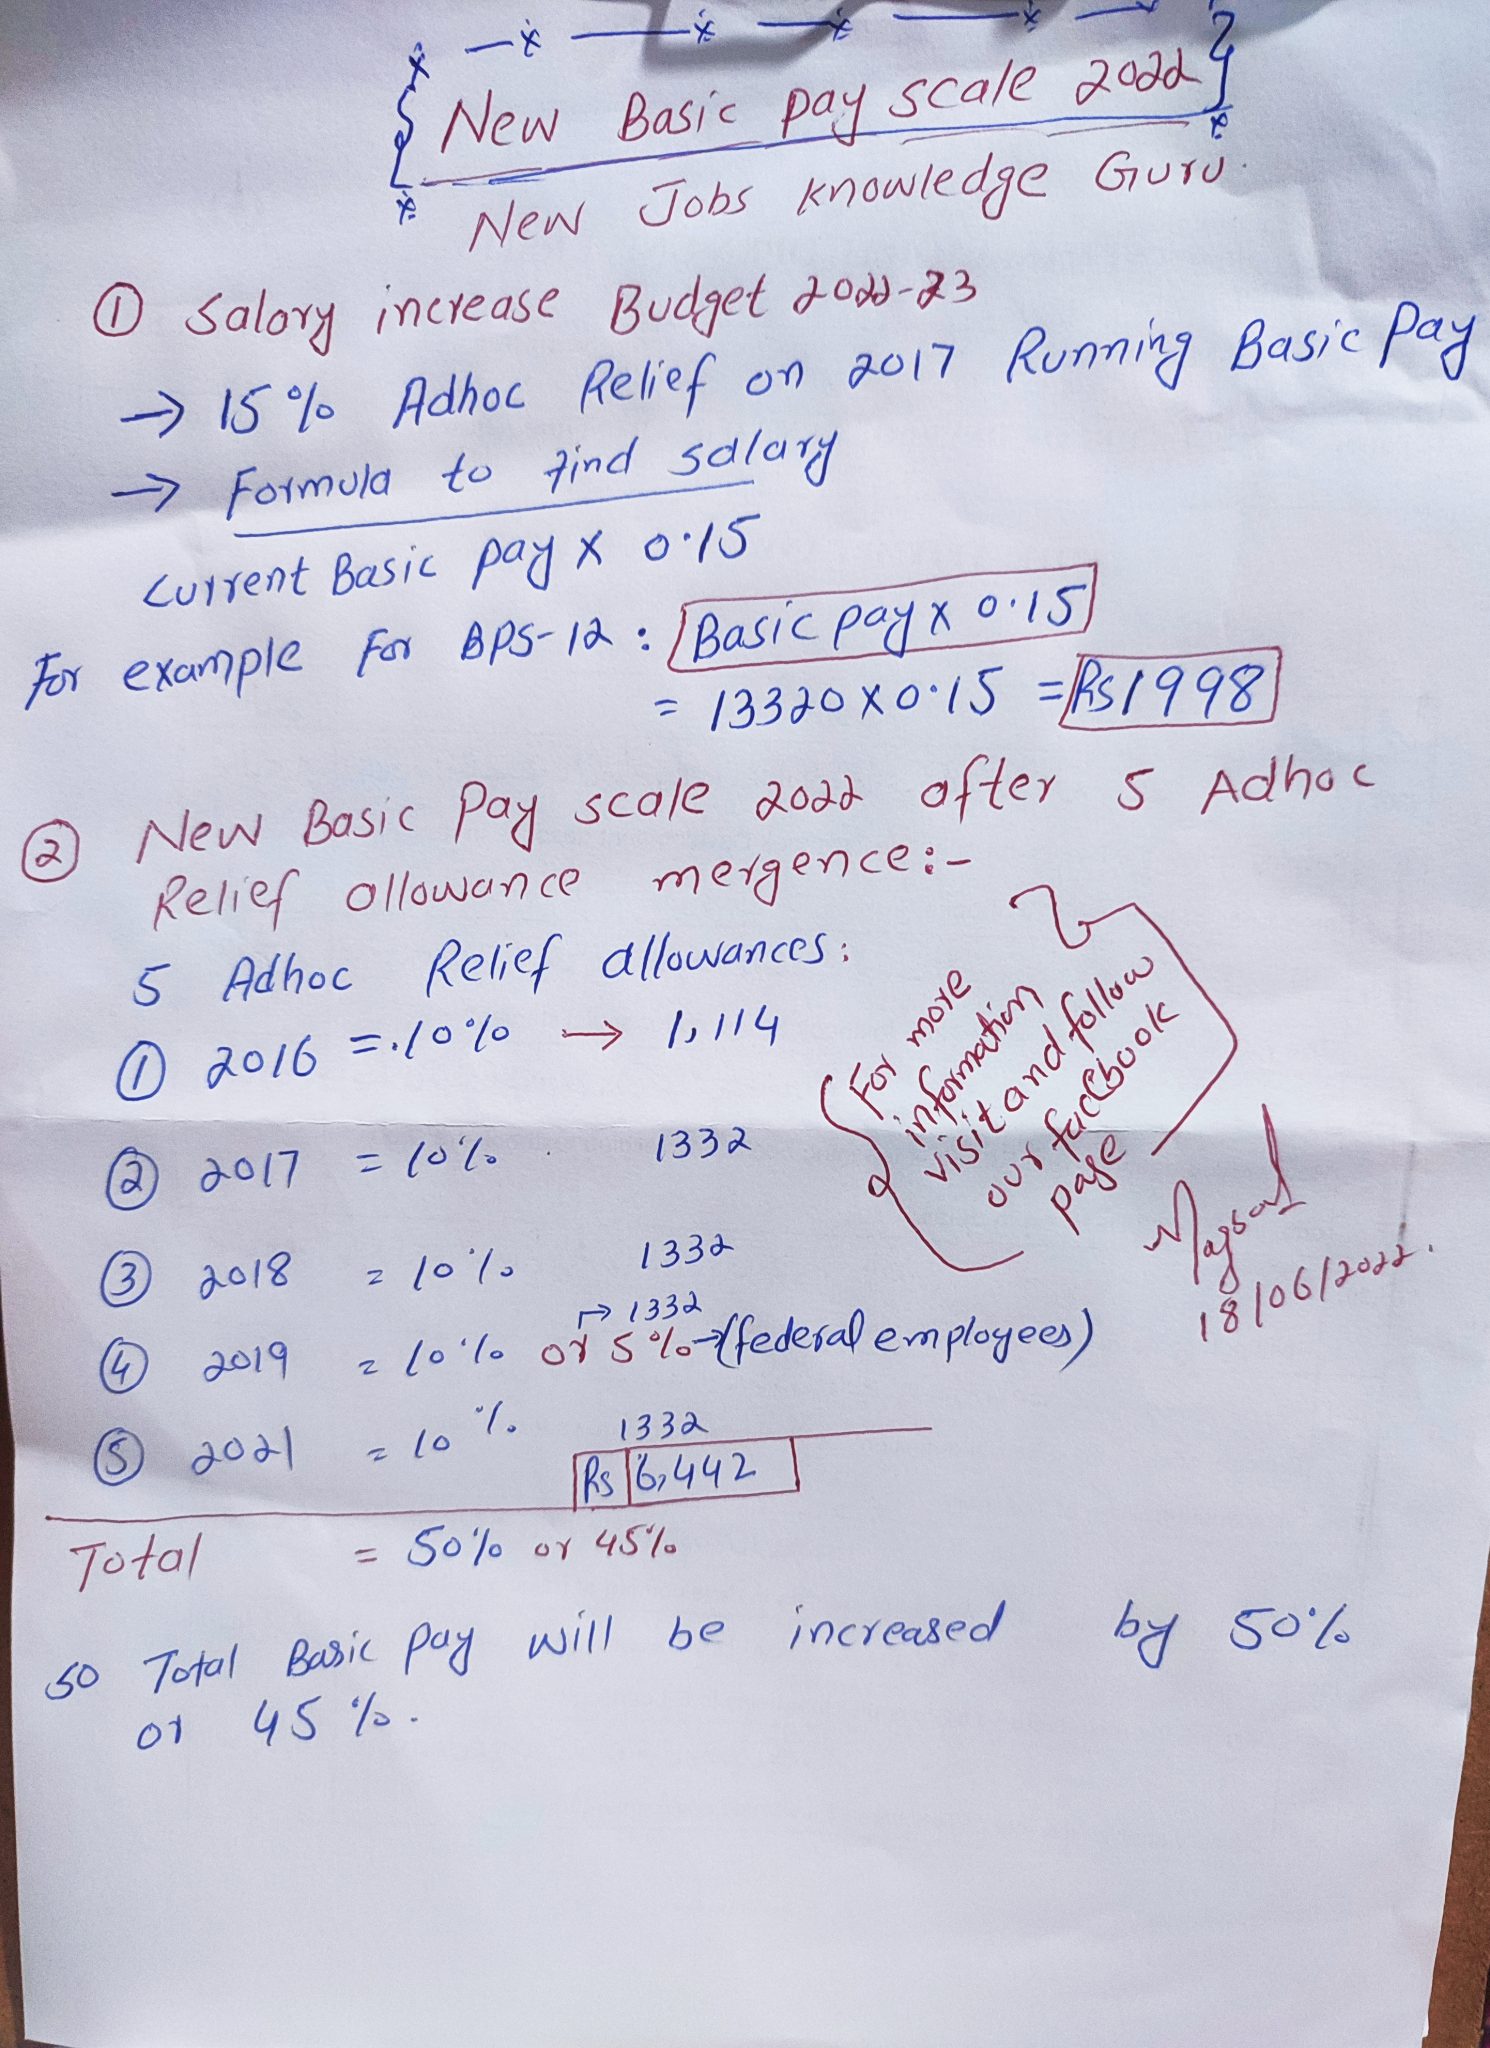 New Basic Pay scale 2022
New Jobs knowledge Guru.
① Salary increase Budget 2022-23
→ 15% Adhoc Relief on 2017 Running Basic Pay
→ Formula to find salary
Current Basic pay x 0.15
For example for BPS-12 : Basic pay x 0.15
= 13320 x 0.15 = Rs 1998
② New Basic Pay scale 2022 after 5 Adhoc
Relief allowance mergence:-
5 Adhoc Relief allowances:
① 2016 = 10% → 1,114
② 2017 = 10% 1332
③ 2018 = 10% 1332
→ 1332
④ 2019 = 10% or 5% → (federal employees)
⑤ 2021 = 10% 1332
Rs 6,442
Total = 50% or 45%
So Total Basic pay will be increased by 50%
or 45%.
For more
information
visit and follow
our facebook
page
18/06/2022.